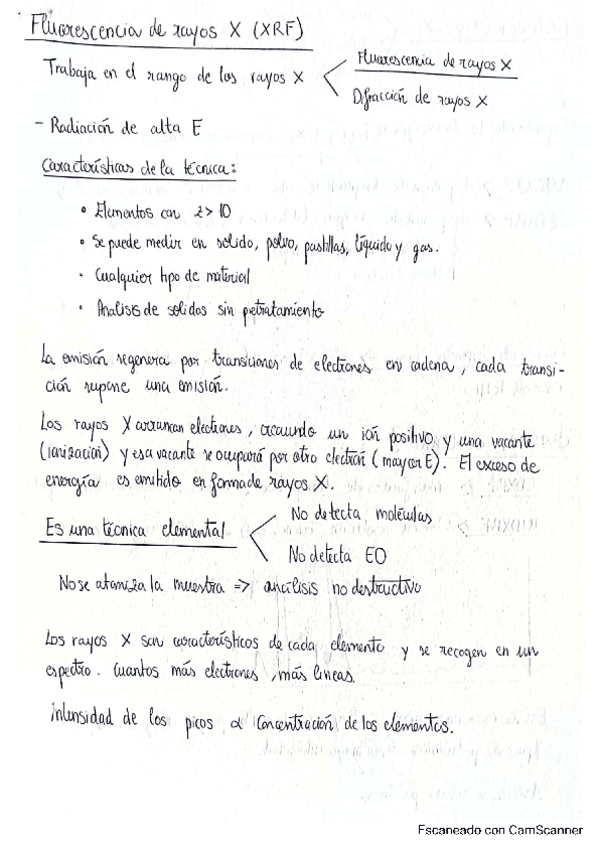 Fluorescencia de rayos X (XRF)
Trabaja en el rango de los rayos X < Fluorescencia de rayos X
Difracción de rayos X
- Radiación de alta E
Características de la técnica:
• Elementos con z > 10
• Se puede medir en solido, polvo, pastillas, líquido y gas.
• Cualquier tipo de material
• Analisis de solidos sin petratamiento
La emisión se genera por transiciones de electrones en cadena, cada transi-
ción supone una emisión.
Los rayos X arrancan electrones, creando un ión positivo y una vacante
(ionización) y esa vacante se ocupará por otro electrón (mayor E). El exceso de
energía es emitido en forma de rayos X.
Es una técnica elemental < No detecta moléculas
No detecta EO
No se atomiza la muestra => análisis no destructivo
Los rayos X son característicos de cada elemento y se recogen en un
espectro. Cuantos más electrones, más lineas.
intensidad de los picos α Concentración de los elementos.
Escaneado con CamScanner